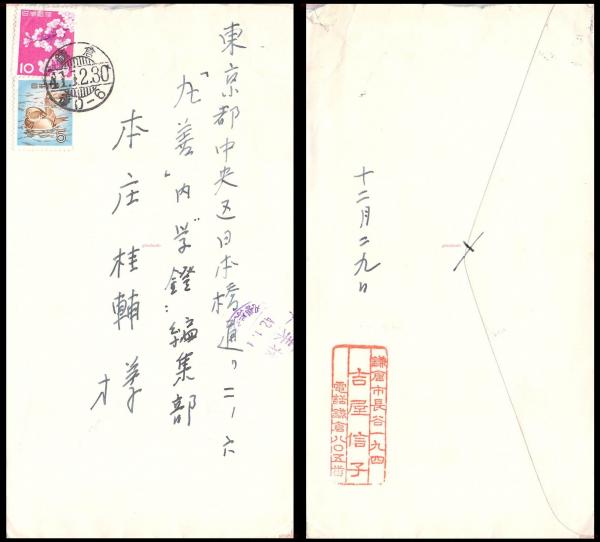 東京都中央区日本橋通り二ノ六
「丸善」内学鐙:編集部
本庄桂輔様
日本郵便
10
鎌倉
41.12.30
0-6
10
十二月二九日
鎌倉市長谷一九四
吉屋信子
電話鎌倉八〇五番